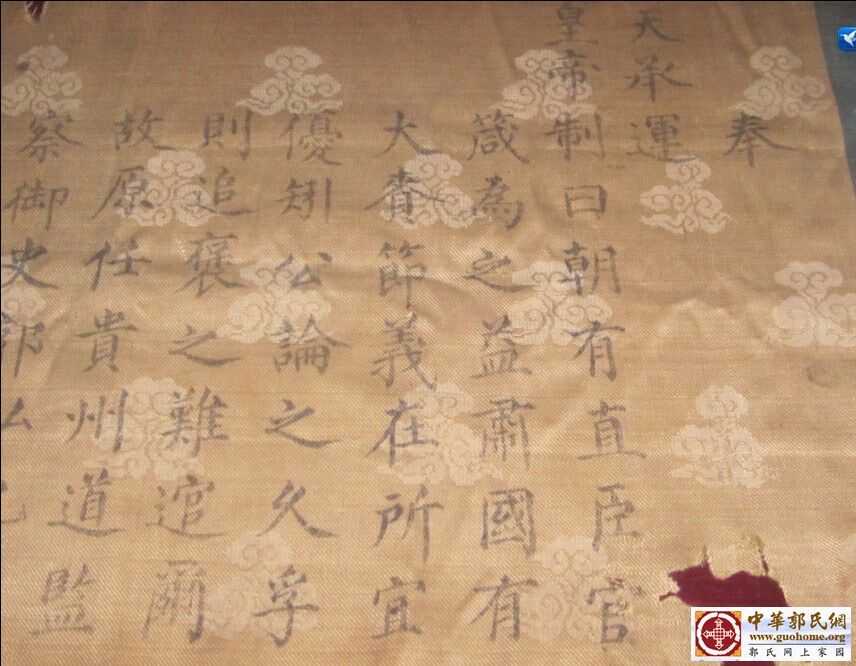 奉
天承運
皇帝制曰朝有直臣官
箴為之益肅國有
大節義在所宜
優矧公論之久孚
則追褒之難逭爾
故原任貴州道監
察御史郭
中華郭氏網
www.guohome.org
郭氏网上家园